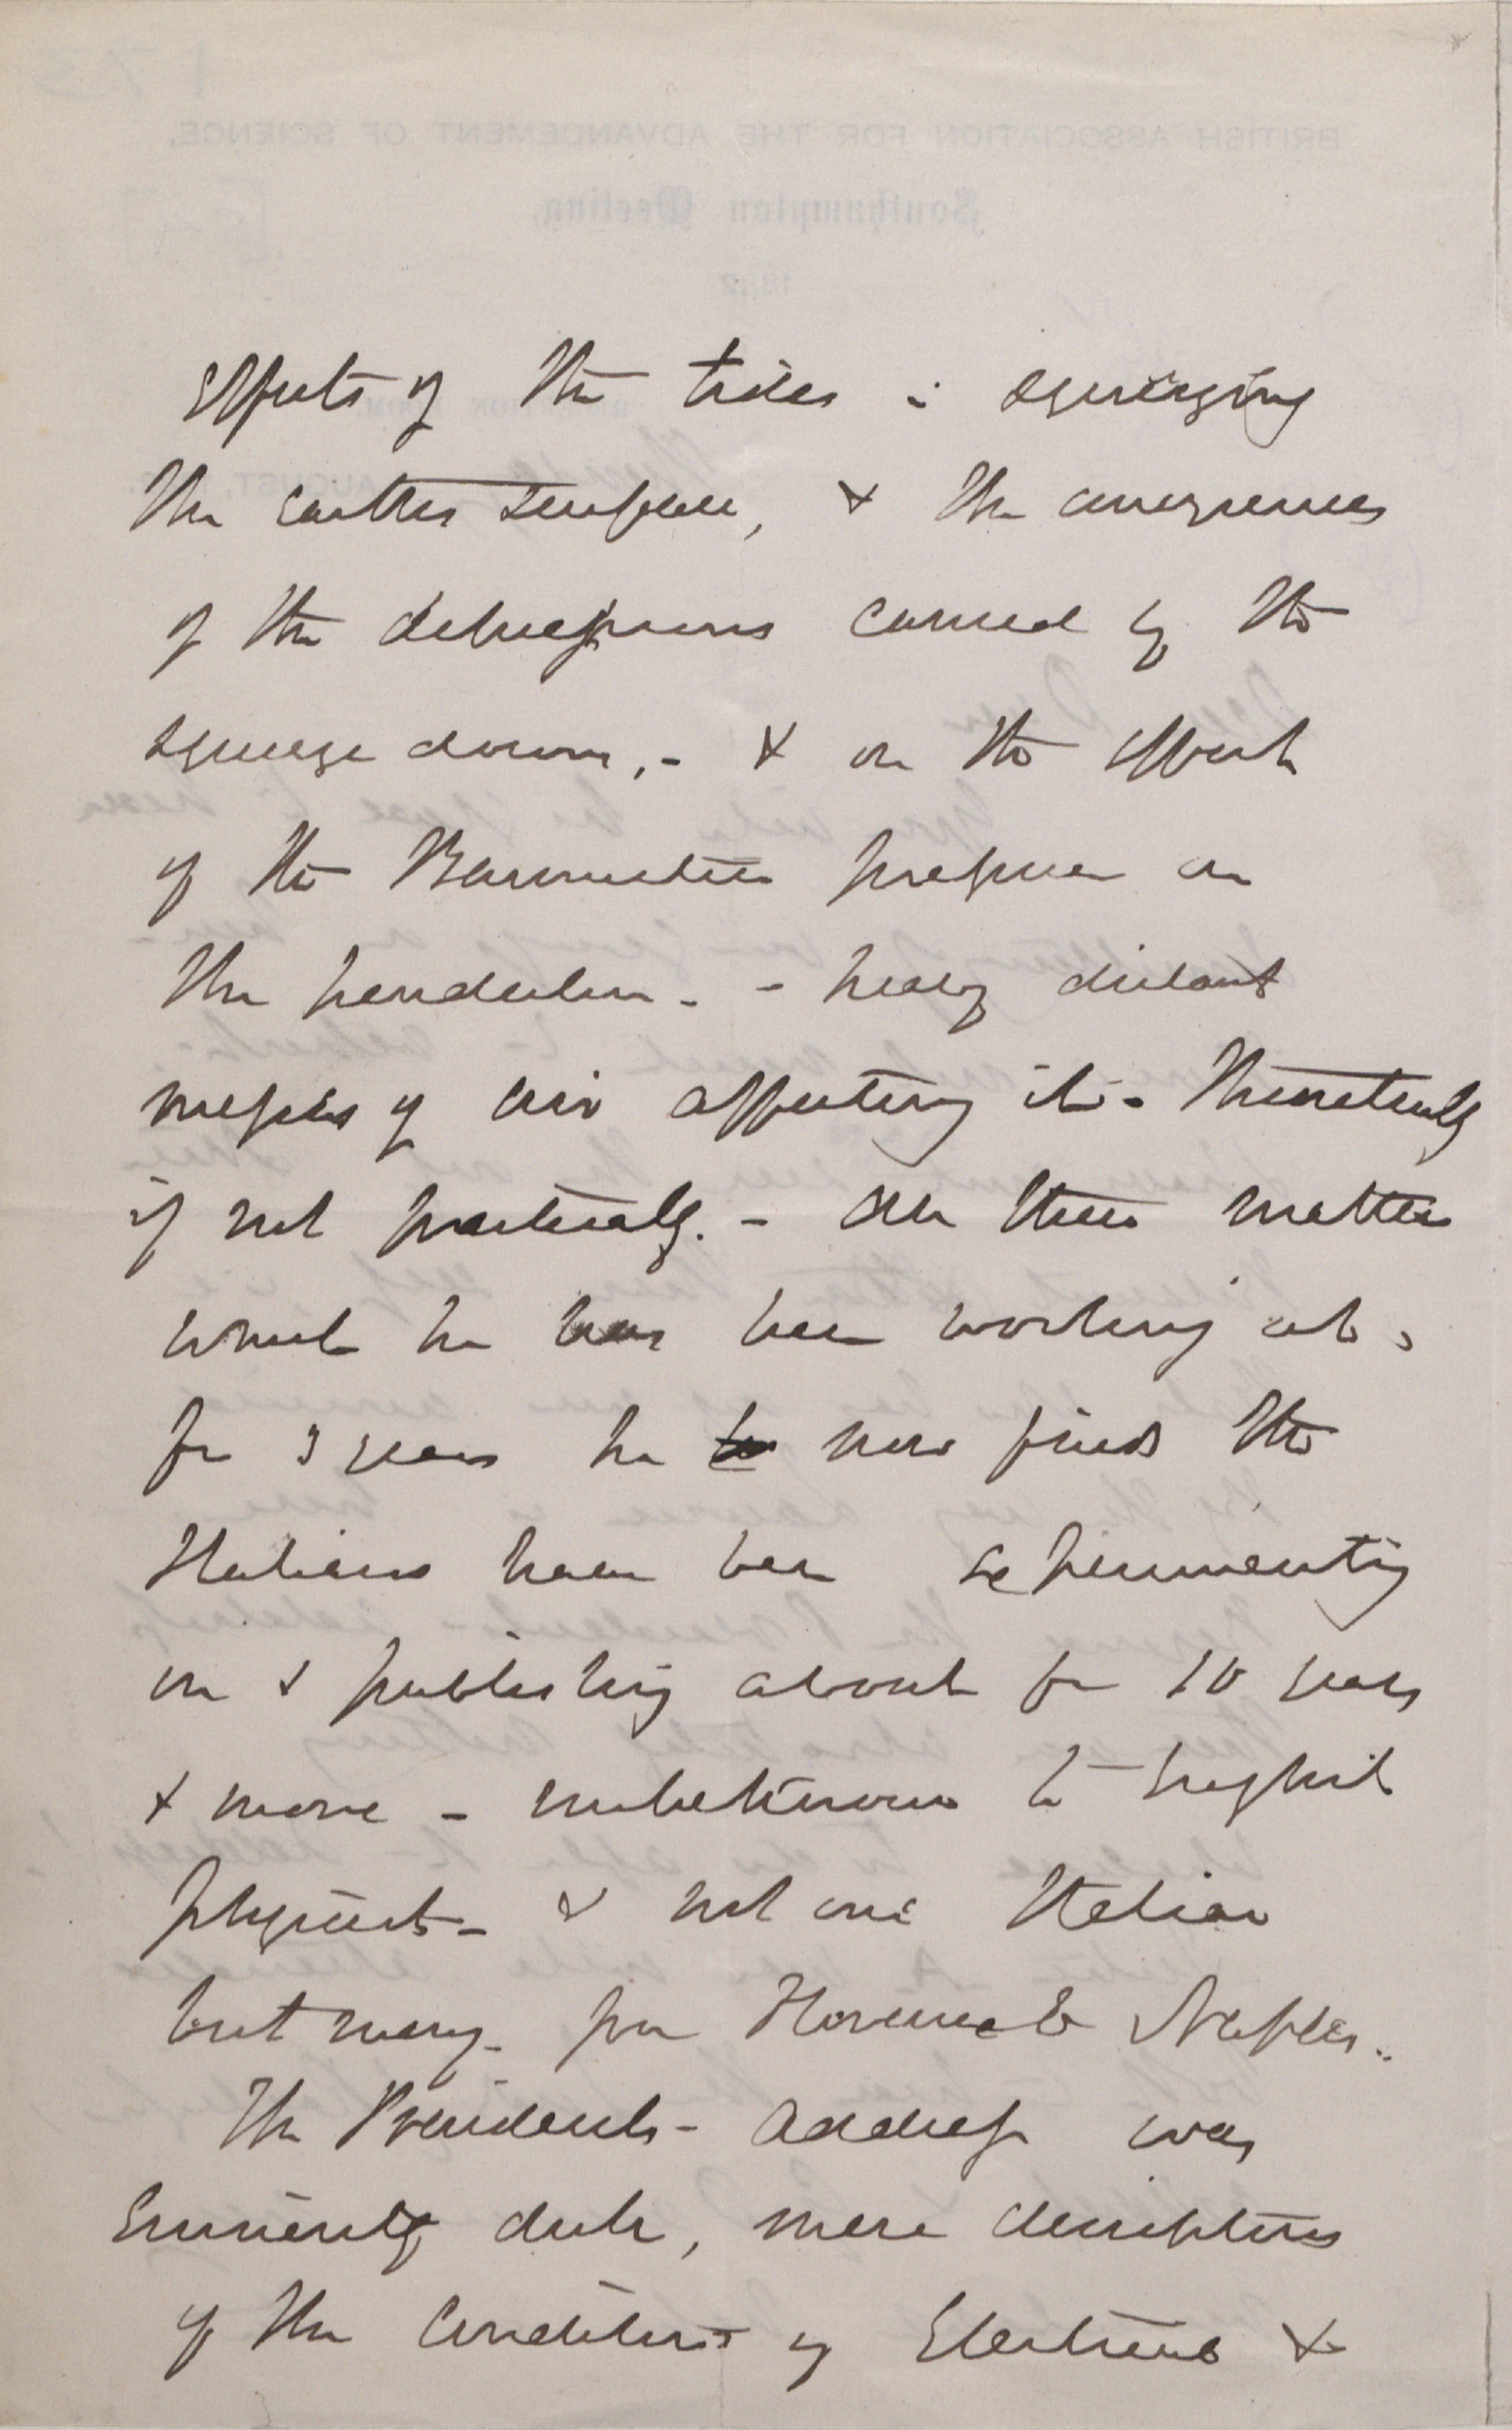 effects of the tides in squeezing
the earths surface, & the consequences
of the depressions caused by the
squeeze down, - & on the effect
of the Barometric pressure on
the pendulum. - heavy distant
masses of air affecting it - theoretically
if not practically. - All these matters
which he has been working at,
for 3 years he now finds the
Italians have been experimenting
on & publishing about for 10 years
& more - unbeknown to English
physicists - & not one Italian
but many. from Florence to Naples..
The Presidents - Address was
Eminently dull, mere descriptions
of the Conditions of Electrics &